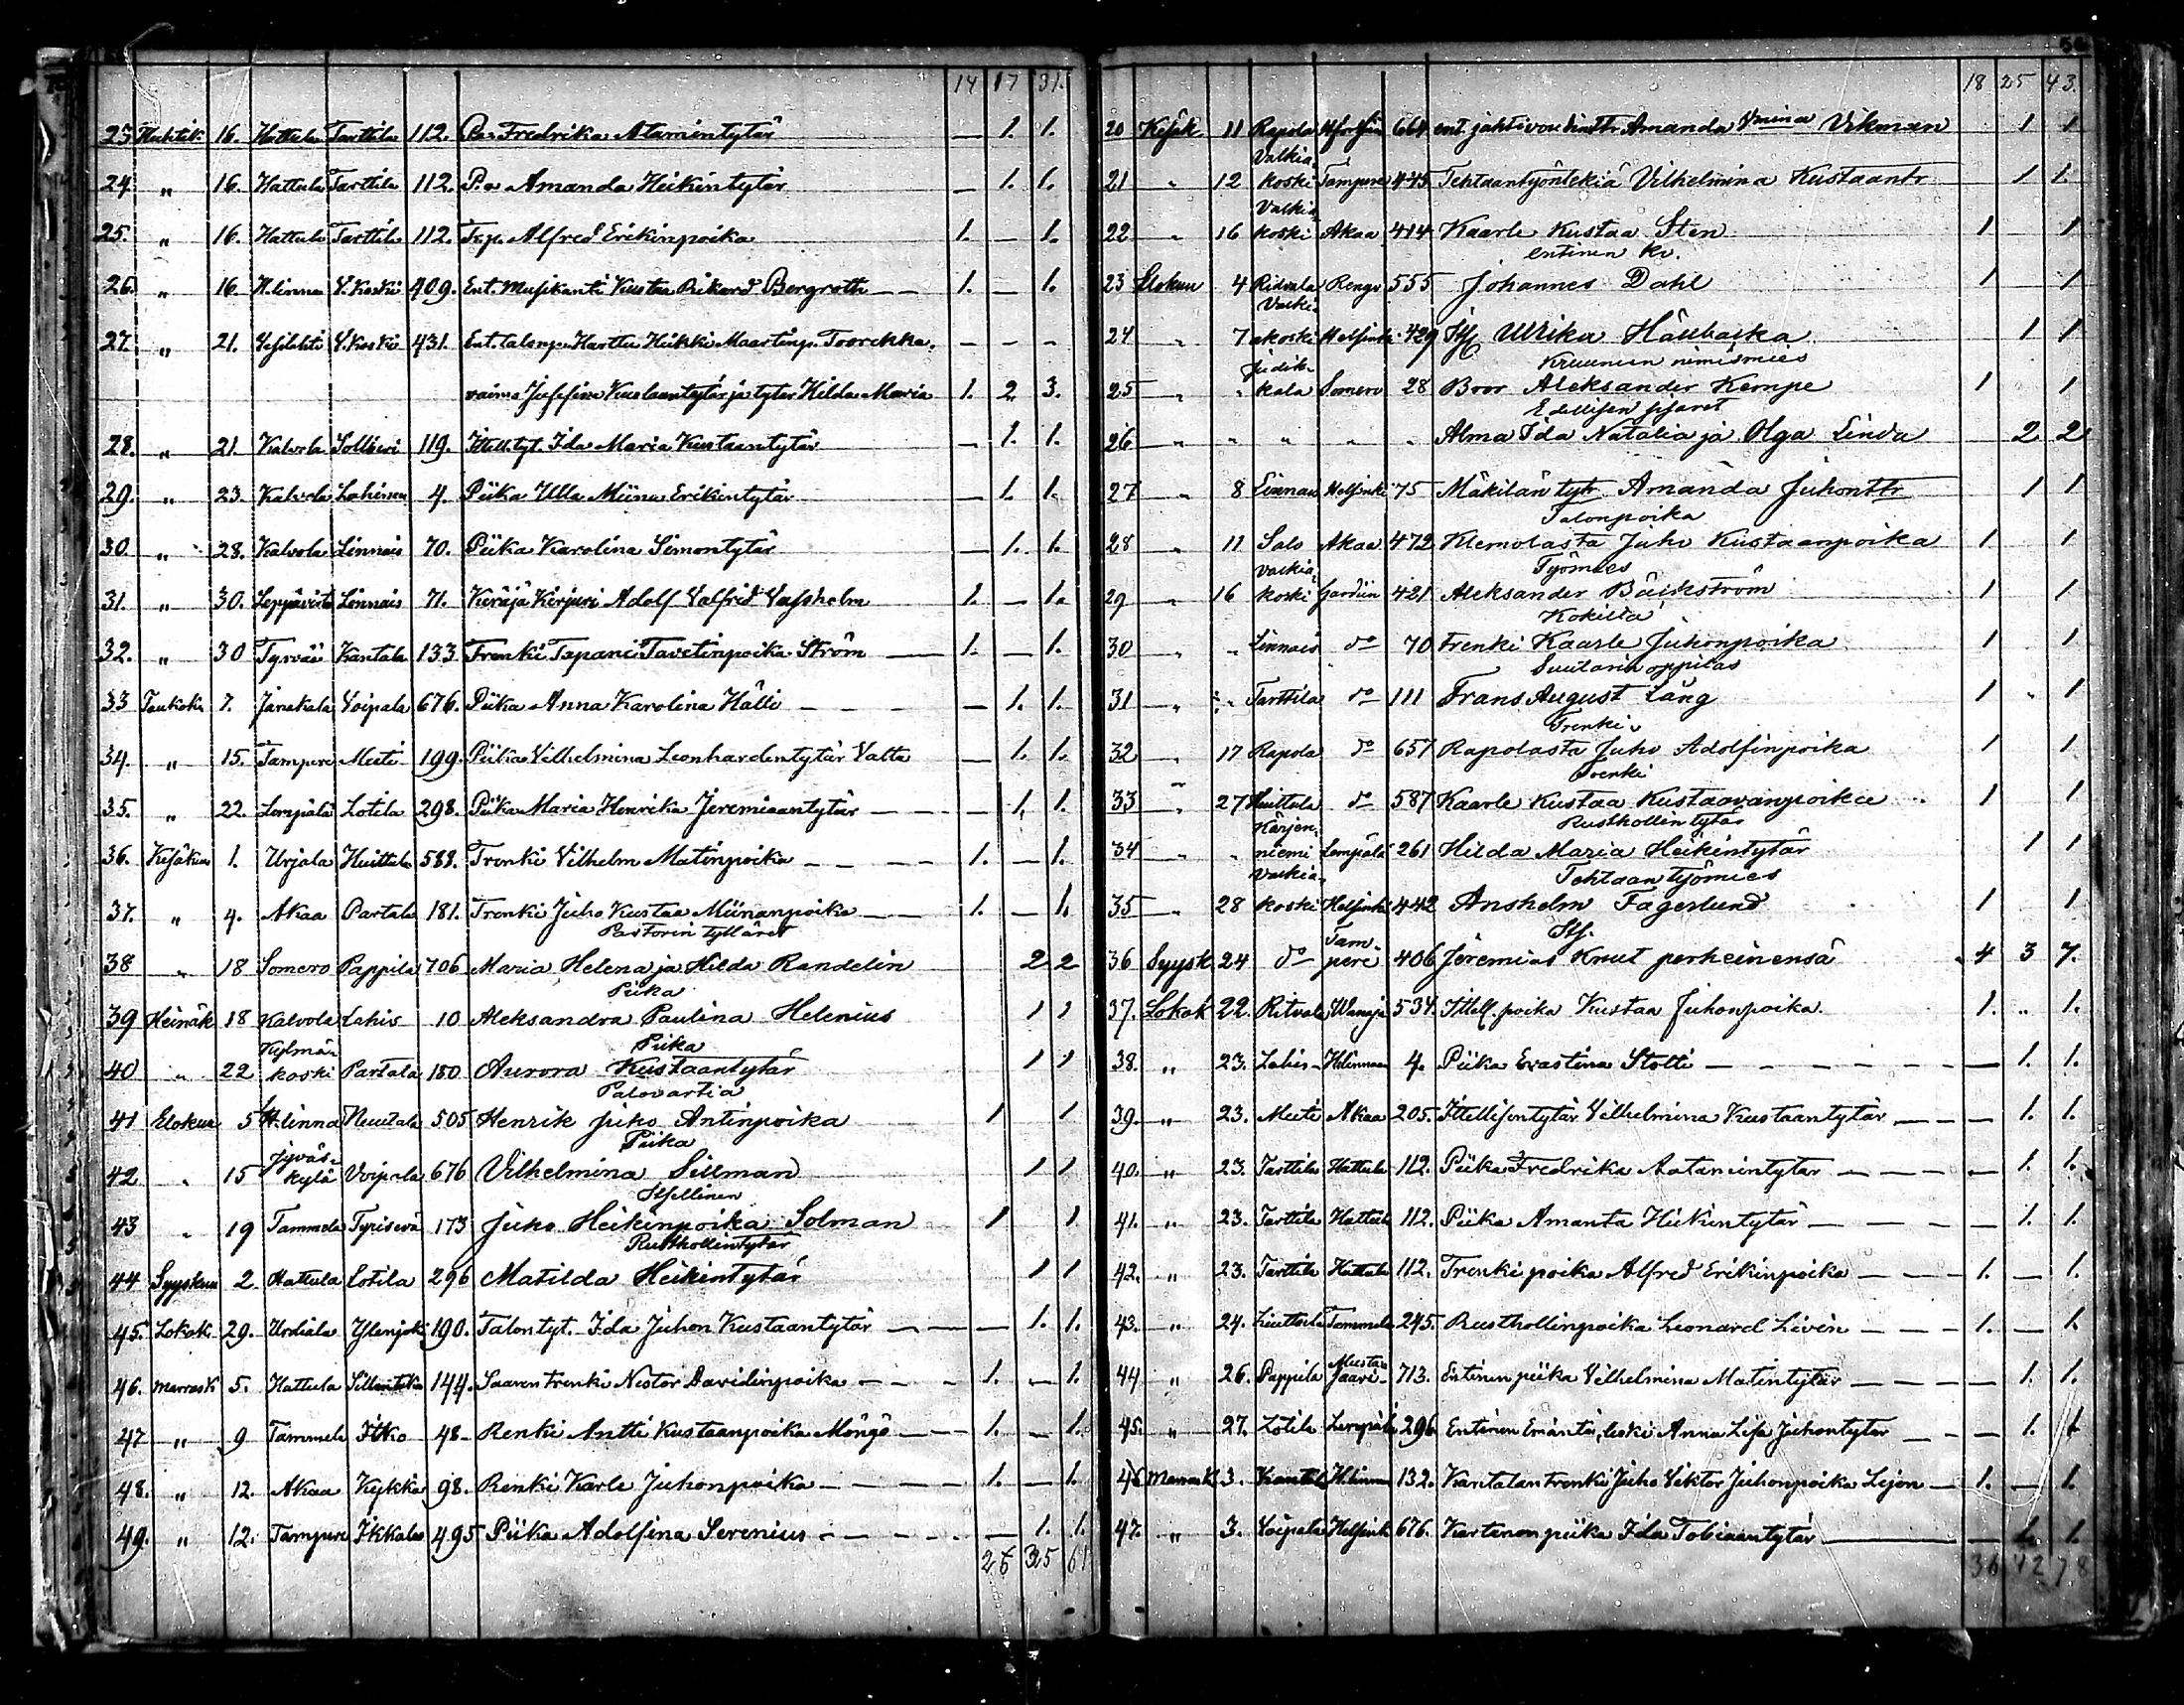 14 17 31.
23 Huhtik 16. Hattula Tarttila 112. Pa Fredrika Atamintytär — 1. 1.
24. „ 16. Hattula Tarttila 112. P:a Amanda Heikintytär — 1. 1.
25. „ 16. Hattula Tarttila 112. Alfred Erikinpoika 1. — 1.
26. „ 16. H.linna V.Koski 409. Ent. Musikanti Kustaa Rikard Bergroth 1. — 1.
27. „ 21. Vesilahti V.Koski 431. Ent. talonp. Harttu Heikki Maartinp. — — —
vaimo Josefina Kustaantytär ja tytär Hilda Maria 1. 2. 3.
28. „ 21. Kalvola 119. Ittell.tyt. Ida Maria Kustaantytär — 1. 1.
29. „ 23. Kalvola Lahinen 4. Piika Ulla Miina Erikintytär — 1. 1.
30. „ 28. Kalvola Linnais 70. Piika Karolina Simontytär — 1. 1.
31. „ 30. Leppävirta Linnais 71. Käräjä Kirjuri Adolf Valfrid 1. — 1.
32. „ 30 Tyrvää Kantala 133 Trenki Tapani Tavetinpoika Ström 1. — 1.
33 Toukok. 7. Janakala Voipala 676. Piika Anna Karolina Hälli — 1. 1.
34. „ 15. Tampere Meeti 199. Piika Vilhelmina Leonhardentytär Valta — 1. 1.
35. „ 22. Lempälä Lotila 298. Piika Maria Henrika Jeremiaantytär — 1. 1.
36. Kesäkuu 1. Urjala Huittula 588. Trenki Vilhelm Matinpoika 1. — 1.
37. „ 4. Akaa Partala 181. Trenki Juho Kustaa Miinanpoika 1. — 1.
Pastorin tyttäret
38 „ 18 Somero Pappila 706 Maria Helena ja Hilda Randelin 2 2
Piika
39 Heinäk 18 Kalvola Lahis 10 Aleksandra Paulina Helenius 1 1
Kylmä- Piika
40 „ 22 koski Partala 180 Aurora Kustaantytär 1 1
Palovartia
41 Elokuu 5 H.linna 505 Henrik Juho Antinpoika 1 1
Jyväs- Piika
42 „ 15 kylä Voipala 676 Vilhelmina Sillman 1 1
Itsellinen
43 „ 19 Tammela Tyrisevä 173 Juho Heikinpoika Solman 1 1
Rusthollintytär
44 Syyskuu 2 Hattula Lotila 296 Matilda Heikintytär 1 1
45. Lokok. 29. Urdiala Ylenjoki 190. Talon tyt. Ida Juhon Kustaantytär — 1. 1.
46. Marrask 5. Hattula 144. Saaren trenki Nestor Davidinpoika 1. — 1.
47 „ 9 Tammela Itko 48 Renki Antti Kustaanpoika Möngö 1. — 1.
48. „ 12. Akaa Kykkä 98. Renki Karle Juhonpoika 1. — 1.
49. „ 12. Tampere Ikkala 495 Piika Adolfina Serenius — 1. 1.
18 25 43.
20 Kesäk 11 Rapola 664 ent. Amanda Vmina Vikman 1 1
Valkia-
21 „ 12 koski Tampere 445 Tehtaantyöntekiä Vilhelmina Kustaantr 1 1.
Valkia-
22 „ 16 koski Akaa 414 Kaarle Kustaa Sten 1 1
entinen kv.
23 Elokuu 4 Ridvala Rengo 555 Johannes Dahl 1 1
Valki-
24 „ 7 akoski Helsinki 429 Ulrika 1 1
Kruunun nimismies
25 „ „ kala Somero 28 Bror Aleksander Kempe 1 1
Edellisen sisaret
26 „ „ „ „ „ Alma Ida Natalia ja Olga Linda 2 2
27 „ 8 Linnais Helsinki 75 Mäkilän tytr Amanda Juhonttr 1 1
Talonpoika
28 „ 11 Salo Akaa 472 Klemolasta Juho Kustaanpoika 1 1
Valkia- Työmies
29 „ 16 koski 421 Aleksander Bäckström 1 1
30 „ „ Linnais do 70 Trenki Kaarle Juhonpoika 1 1
Suutarin oppilas
31 „ „ Tarttila do 111 Frans August Lång 1 1
Trenki
32 „ 17 Rapola do 657 Rapolasta Juho Adolfinpoika 1 1
Trenki
33 „ 27 Huittula do 587 Kaarle Kustaa Kustaavanpoika 1 1
Kärjen- Rusthollin tytär
34 „ „ niemi Lempälä 261 Hilda Maria Heikintytär 1 1
Valkia- Tehtaan työmies
35 „ 28 koski Helsinki 442 Anshelm Fagerlund 1 1
Tam- Itf.
36 Syysk 24 do pere 406 Jeremias Knut perheinensä 4 3 7.
37. Lokok 22. Ritvala Wanaja 534. Ittell. poika Kustaa Juhonpoika. 1. „ 1.
38. „ 23. Lahis H.linnaan 4. Piika Evastina Stolti — 1. 1.
39. „ 23. Meeti Akaa 205. Ittellisentytär Vilhelmina Kustaantytär — 1. 1.
40. „ 23. Tarttila Hattula 112. Piika Fredrika Aatamintytar — 1. 1.
41. „ 23. Tarttila Hattula 112. Piika Amanta Heikintytär — 1. 1.
42. „ 23. Tarttila Hattula 112. Trenki poika Alfred Erikinpoika 1. — 1.
43. „ 24. Tammela 245. Rusthollinpoika Leonard Livén 1. — 1.
Musta-
44 „ 26. Pappila Saari 713. Entinen piika Vilhelmina Matintytär — 1. 1.
45. „ 27. Lotila Lempälä 296 Entinen Emäntä, leski Anna Lisa Juhontytar — 1. 1
46 Marrask 3. Kantala H.linna 132. Kantalan trenki Juho Viktor Juhonpoika Lejon 1. — 1.
47. „ 3. Voipala Helsinki 676. Kartanon piika Ida Tobiaantytär 1. 1.
36 42 78